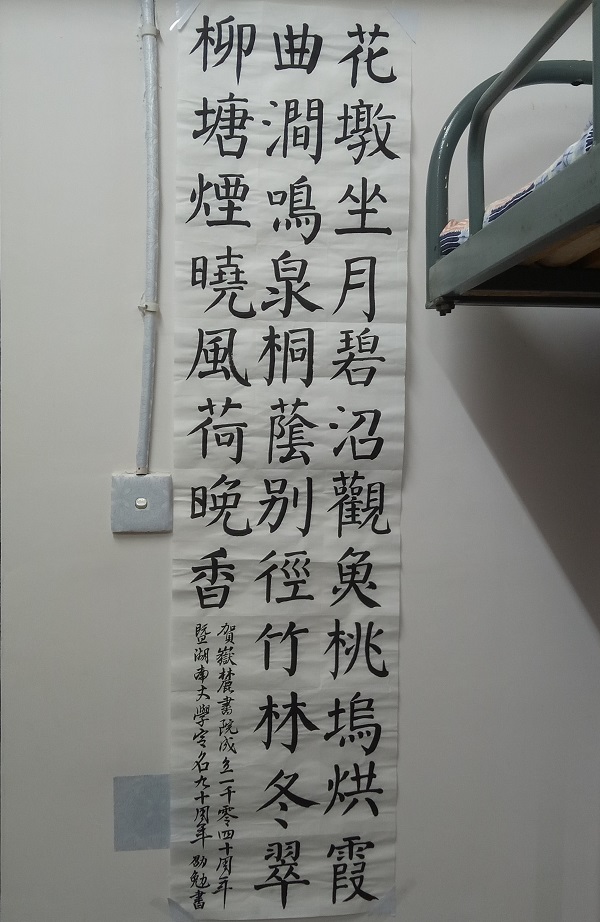 花墩坐月碧沼觀魚桃塢烘霞
曲澗鳴泉桐蔭別徑竹林冬翠
柳塘煙曉風荷晚香
賀嶽麓書院成立一千零四十周年
暨湖南大學定名九十周年 勁勉書